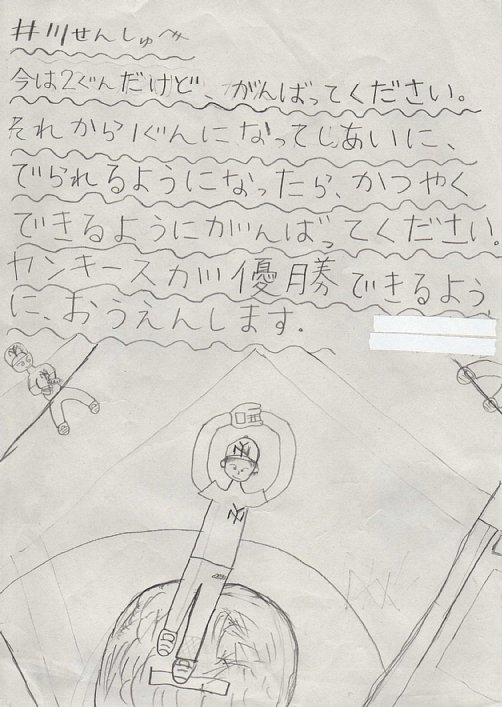 井川せんしゅへ
今は2ぐんだけど、がんばってください。
それから1ぐんになってしあいに、
でられるようになったら、かつやく
できるようにがんばってください。
ヤンキースが優勝できるよう
に、おうえんします.
NY
NY
NY